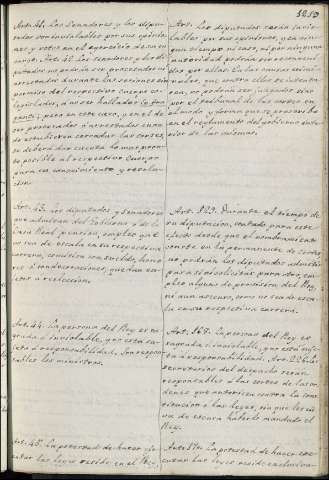 3210
Art. 41. Los Senadores y los dipu-
tados son inviolables por sus opinio-
nes y votos en el ejercicio de su en-
cargo. Art. 42. Los senadores y los di-
putados no podrán ser procesados ni
arrestados durante las sesiones sin
permiso del respectivo cuerpo co-
legislador, á no ser hallados in fra-
ganti; pero en este caso, y en el de
ser procesados ó arrestados cuan-
do estubieren cerradas las cortes,
se deberá dar cuenta lo mas pron-
to posible al respectivo Cuerpo
para su conocimiento y resolu-
cion.
Art. 43. Los diputados y Senadores
que admitan del Gobierno ó de la
Casa Real pension, empleo que
no sea de escala en su respectiva
carrera, comision con sueldo, hono-
res ó condecoraciones, quedan su-
jetos á reeleccion.
Art. 44. La persona del Rey es sa-
grada é inviolable, y no está su-
jeta á responsabilidad. Son respon-
sables los ministros.
Art. 45. La potestad de hacer eje-
cutar las leyes reside en el Rey,
Art. Los diputados serán invio-
lables por sus opiniones, y en nin-
gun tiempo ni caso, ni por ninguna
autoridad podrán ser reconveni-
dos por ellas. En las causas crimi-
nales, que contra ellos se intenta-
ren, no podrán ser juzgados sino
por el tribunal de Cortes en
el modo y forma que se prescriba
en el reglamento del gobierno inte-
rior de las mismas.
Art. 129. Durante el tiempo de
su diputacion, contado para este
efecto desde que el nombramiento
conste en la permanente de Cortes
no podrán los diputados admitir
para sí, ni solicitar para otro, em-
pleo alguno de provision del Rey,
ni aun ascenso, como no sea de esca-
la en su respectiva carrera.
Art. 168. La persona del Rey es
sagrada é inviolable, y no está suje-
ta á responsabilidad. Art. 226. Los
secretarios del despacho serán
responsables á las cortes de las or-
denes que autoricen contra la cons-
titucion ó las leyes, sin que les sir-
va de escusa haberlo mandado el
Rey.
Art. 170. La potestad de hacer eje-
cutar las leyes reside esclusiva-